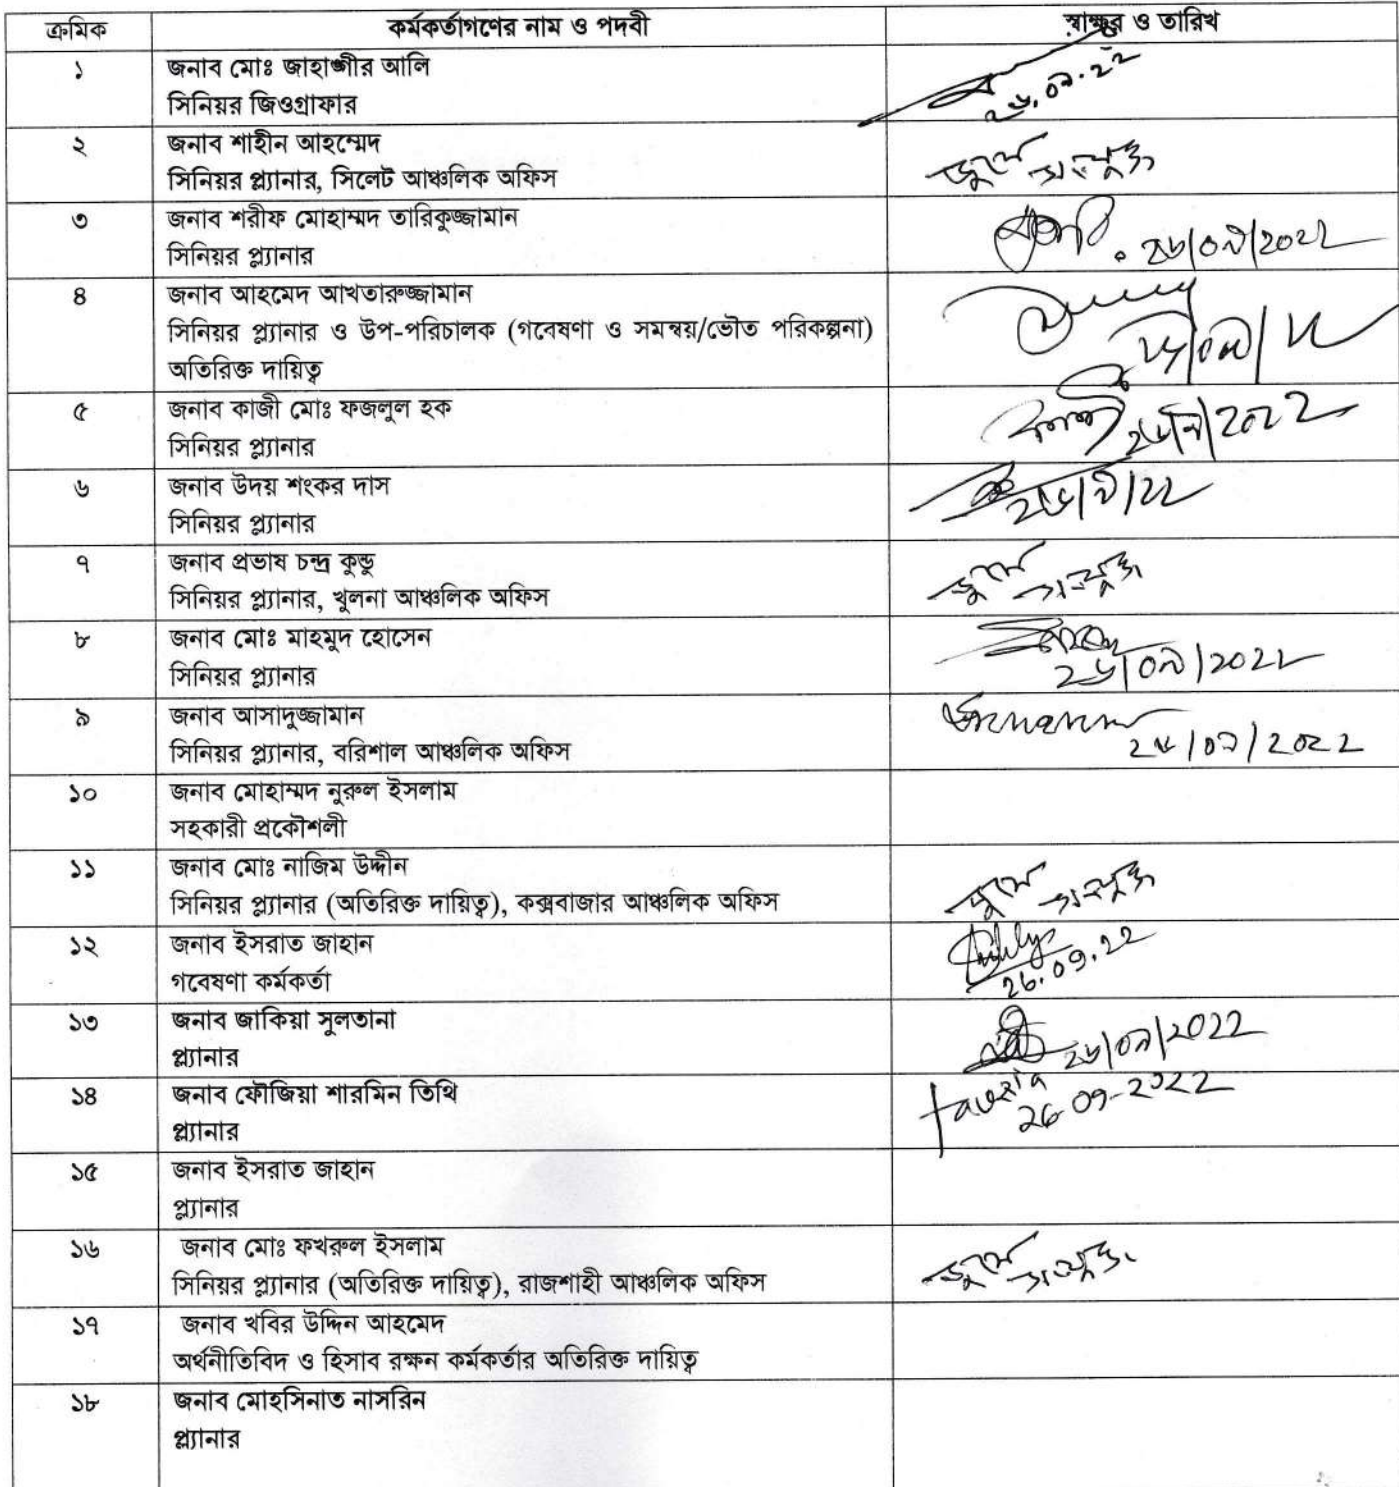 ক্রমিক কর্মকর্তাগণের নাম ও পদবী স্বাক্ষর ও তারিখ
১ জনাব মোঃ জাহাঙ্গীর আলি
সিনিয়র জিওগ্রাফার ২৬.০৯.২২
২ জনাব শাহীন আহম্মেদ
সিনিয়র প্ল্যানার, সিলেট আঞ্চলিক অফিস
৩ জনাব শরীফ মোহাম্মদ তারিকুজ্জামান
সিনিয়র প্ল্যানার ২৬/০৯/২০২২
৪ জনাব আহমেদ আখতারুজ্জামান
সিনিয়র প্ল্যানার ও উপ-পরিচালক (গবেষণা ও সমন্বয়/ভৌত পরিকল্পনা)
অতিরিক্ত দায়িত্ব
৫ জনাব কাজী মোঃ ফজলুল হক
সিনিয়র প্ল্যানার ২৬/৯/২০২২
৬ জনাব উদয় শংকর দাস
সিনিয়র প্ল্যানার ২৬/৯/২২
৭ জনাব প্রভাষ চন্দ্র কুন্ডু
সিনিয়র প্ল্যানার, খুলনা আঞ্চলিক অফিস
৮ জনাব মোঃ মাহমুদ হোসেন
সিনিয়র প্ল্যানার ২৬/০৯/২০২২
৯ জনাব আসাদুজ্জামান
সিনিয়র প্ল্যানার, বরিশাল আঞ্চলিক অফিস ২৬/০৯/২০২২
১০ জনাব মোহাম্মদ নুরুল ইসলাম
সহকারী প্রকৌশলী
১১ জনাব মোঃ নাজিম উদ্দীন
সিনিয়র প্ল্যানার (অতিরিক্ত দায়িত্ব), কক্সবাজার আঞ্চলিক অফিস
১২ জনাব ইসরাত জাহান
গবেষণা কর্মকর্তা 26.09.22
১৩ জনাব জাকিয়া সুলতানা
প্ল্যানার ২৬/০৯/২০২২
১৪ জনাব ফৌজিয়া শারমিন তিথি fauzia
প্ল্যানার 26-09-2022
১৫ জনাব ইসরাত জাহান
প্ল্যানার
১৬ জনাব মোঃ ফখরুল ইসলাম
সিনিয়র প্ল্যানার (অতিরিক্ত দায়িত্ব), রাজশাহী আঞ্চলিক অফিস
১৭ জনাব খবির উদ্দিন আহমেদ
অর্থনীতিবিদ ও হিসাব রক্ষন কর্মকর্তার অতিরিক্ত দায়িত্ব
১৮ জনাব মোহসিনাত নাসরিন
প্ল্যানার